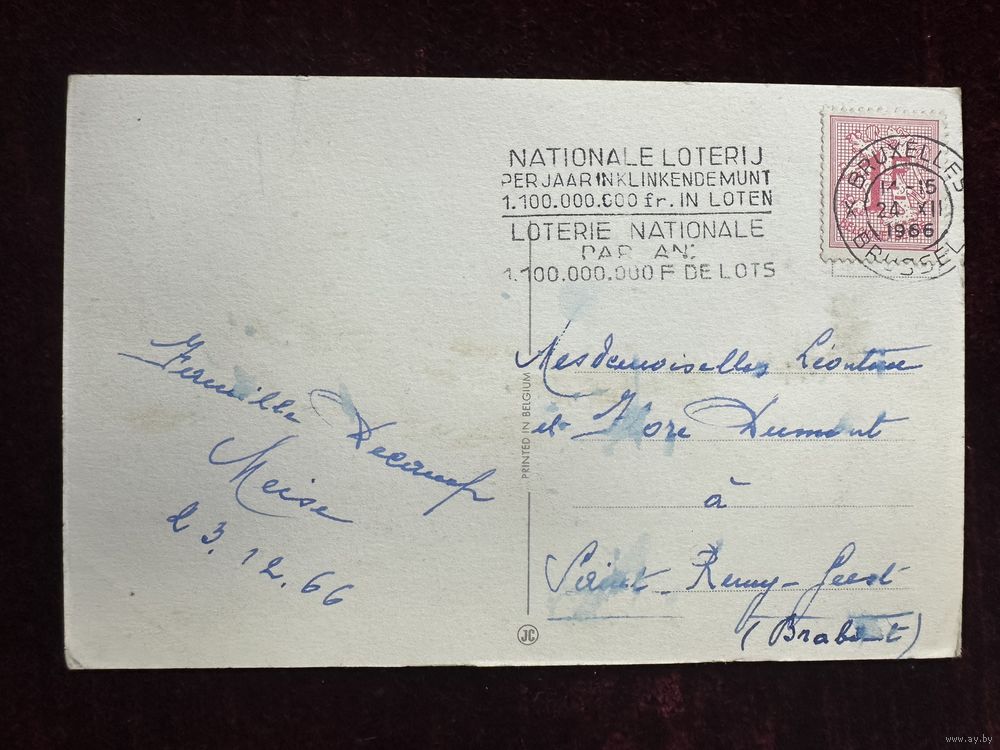 NATIONALE LOTERIJ
PER JAAR IN KLINKENDE MUNT
1.100.000.000 fr. IN LOTEN
LOTERIE NATIONALE
PAR AN:
1.100.000.000 F DE LOTS
BRUXELLES
-15
24 XII
1966
BRUSSEL
Famille Decamp
Meise
23.12.66
PRINTED IN BELGIUM
JC
Mesdemoiselles Léontine
et Flore Dumont
à
Saint-Remy-Geest
(Brabant)
www.ay.by